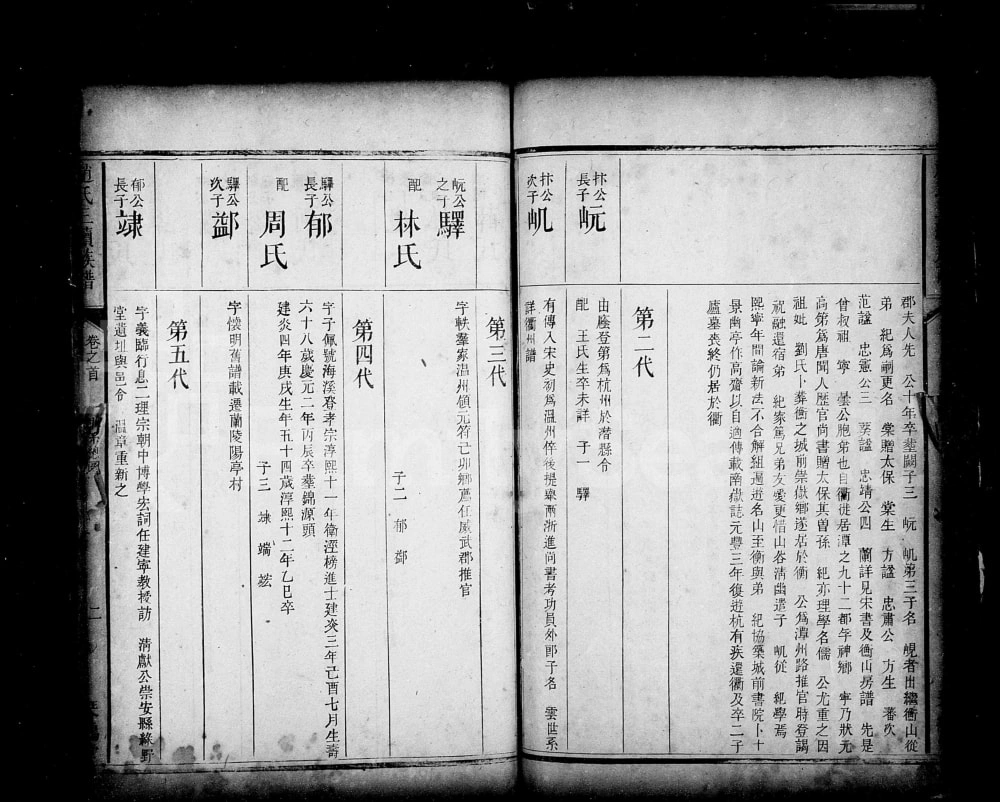 郡夫人先 公十年卒塟闕子三 岏 𡵺弟三子名 峴者出繼衡山從
弟 䊵爲嗣更名 棠贈太保 棠生 方諡 忠肅公 方生 藩次
范諡 忠憲公三 葵諡 忠靖公四 蘭詳見宋書及衡山房譜 先是
曾叔祖 寧 曇公胞弟也自衢徙居潭之九十二都字神鄉 寧乃狀元
高弟爲唐聞人歷官尚書贈太保其曾孫 亦理學名儒 公尤重之因
祖妣 劉氏卜葬衡之城前崇嶽鄉遂居於衡 公爲潭州路推官時登謁
祝融還宿弟 家篤兄弟友愛更惜山谷清幽遣子 從 學焉
熙寧年間論新法不合解組過遊名山至衡與弟 協築城前書院卜十
景幽亭作高齋以自適傳載南嶽誌元豐三年復遊杭有疾還衢及卒二子
廬墓喪終仍居於衢
第二代
抃公長子 岏
由廕登第爲杭州於潛縣令
配 王氏生卒未詳 子一 驛
抃公次子 𡵺
有傳入宋史初爲溫州倅後提舉兩浙進尚書考功員外郎子名 雲世系
詳衢州譜
第三代
岏公之子 驛
字軼羣家溫州領元符己卯鄉薦任威武郡推官
配 林氏
子二 郁 鄬
第四代
驛公長子 郁
字子佩號海溪登孝宗淳熙十一年衛涇榜進士建炎三年己酉七月生壽
六十八歲慶元二年丙辰卒塟錦源頭
配 周氏
建炎四年庚戌生年五十四歲淳熙十二年乙巳卒
子三 竦 端 竑
驛公次子
字懷明舊譜載遷蘭陵陽亭村
第五代
郁公長子 竦
字義臨行息二理宗朝中博學宏詞任建寧教授訪 清獻公崇安縣綠野
堂遺址與邑令 溫章重新之
趙氏 族譜
卷之首
二